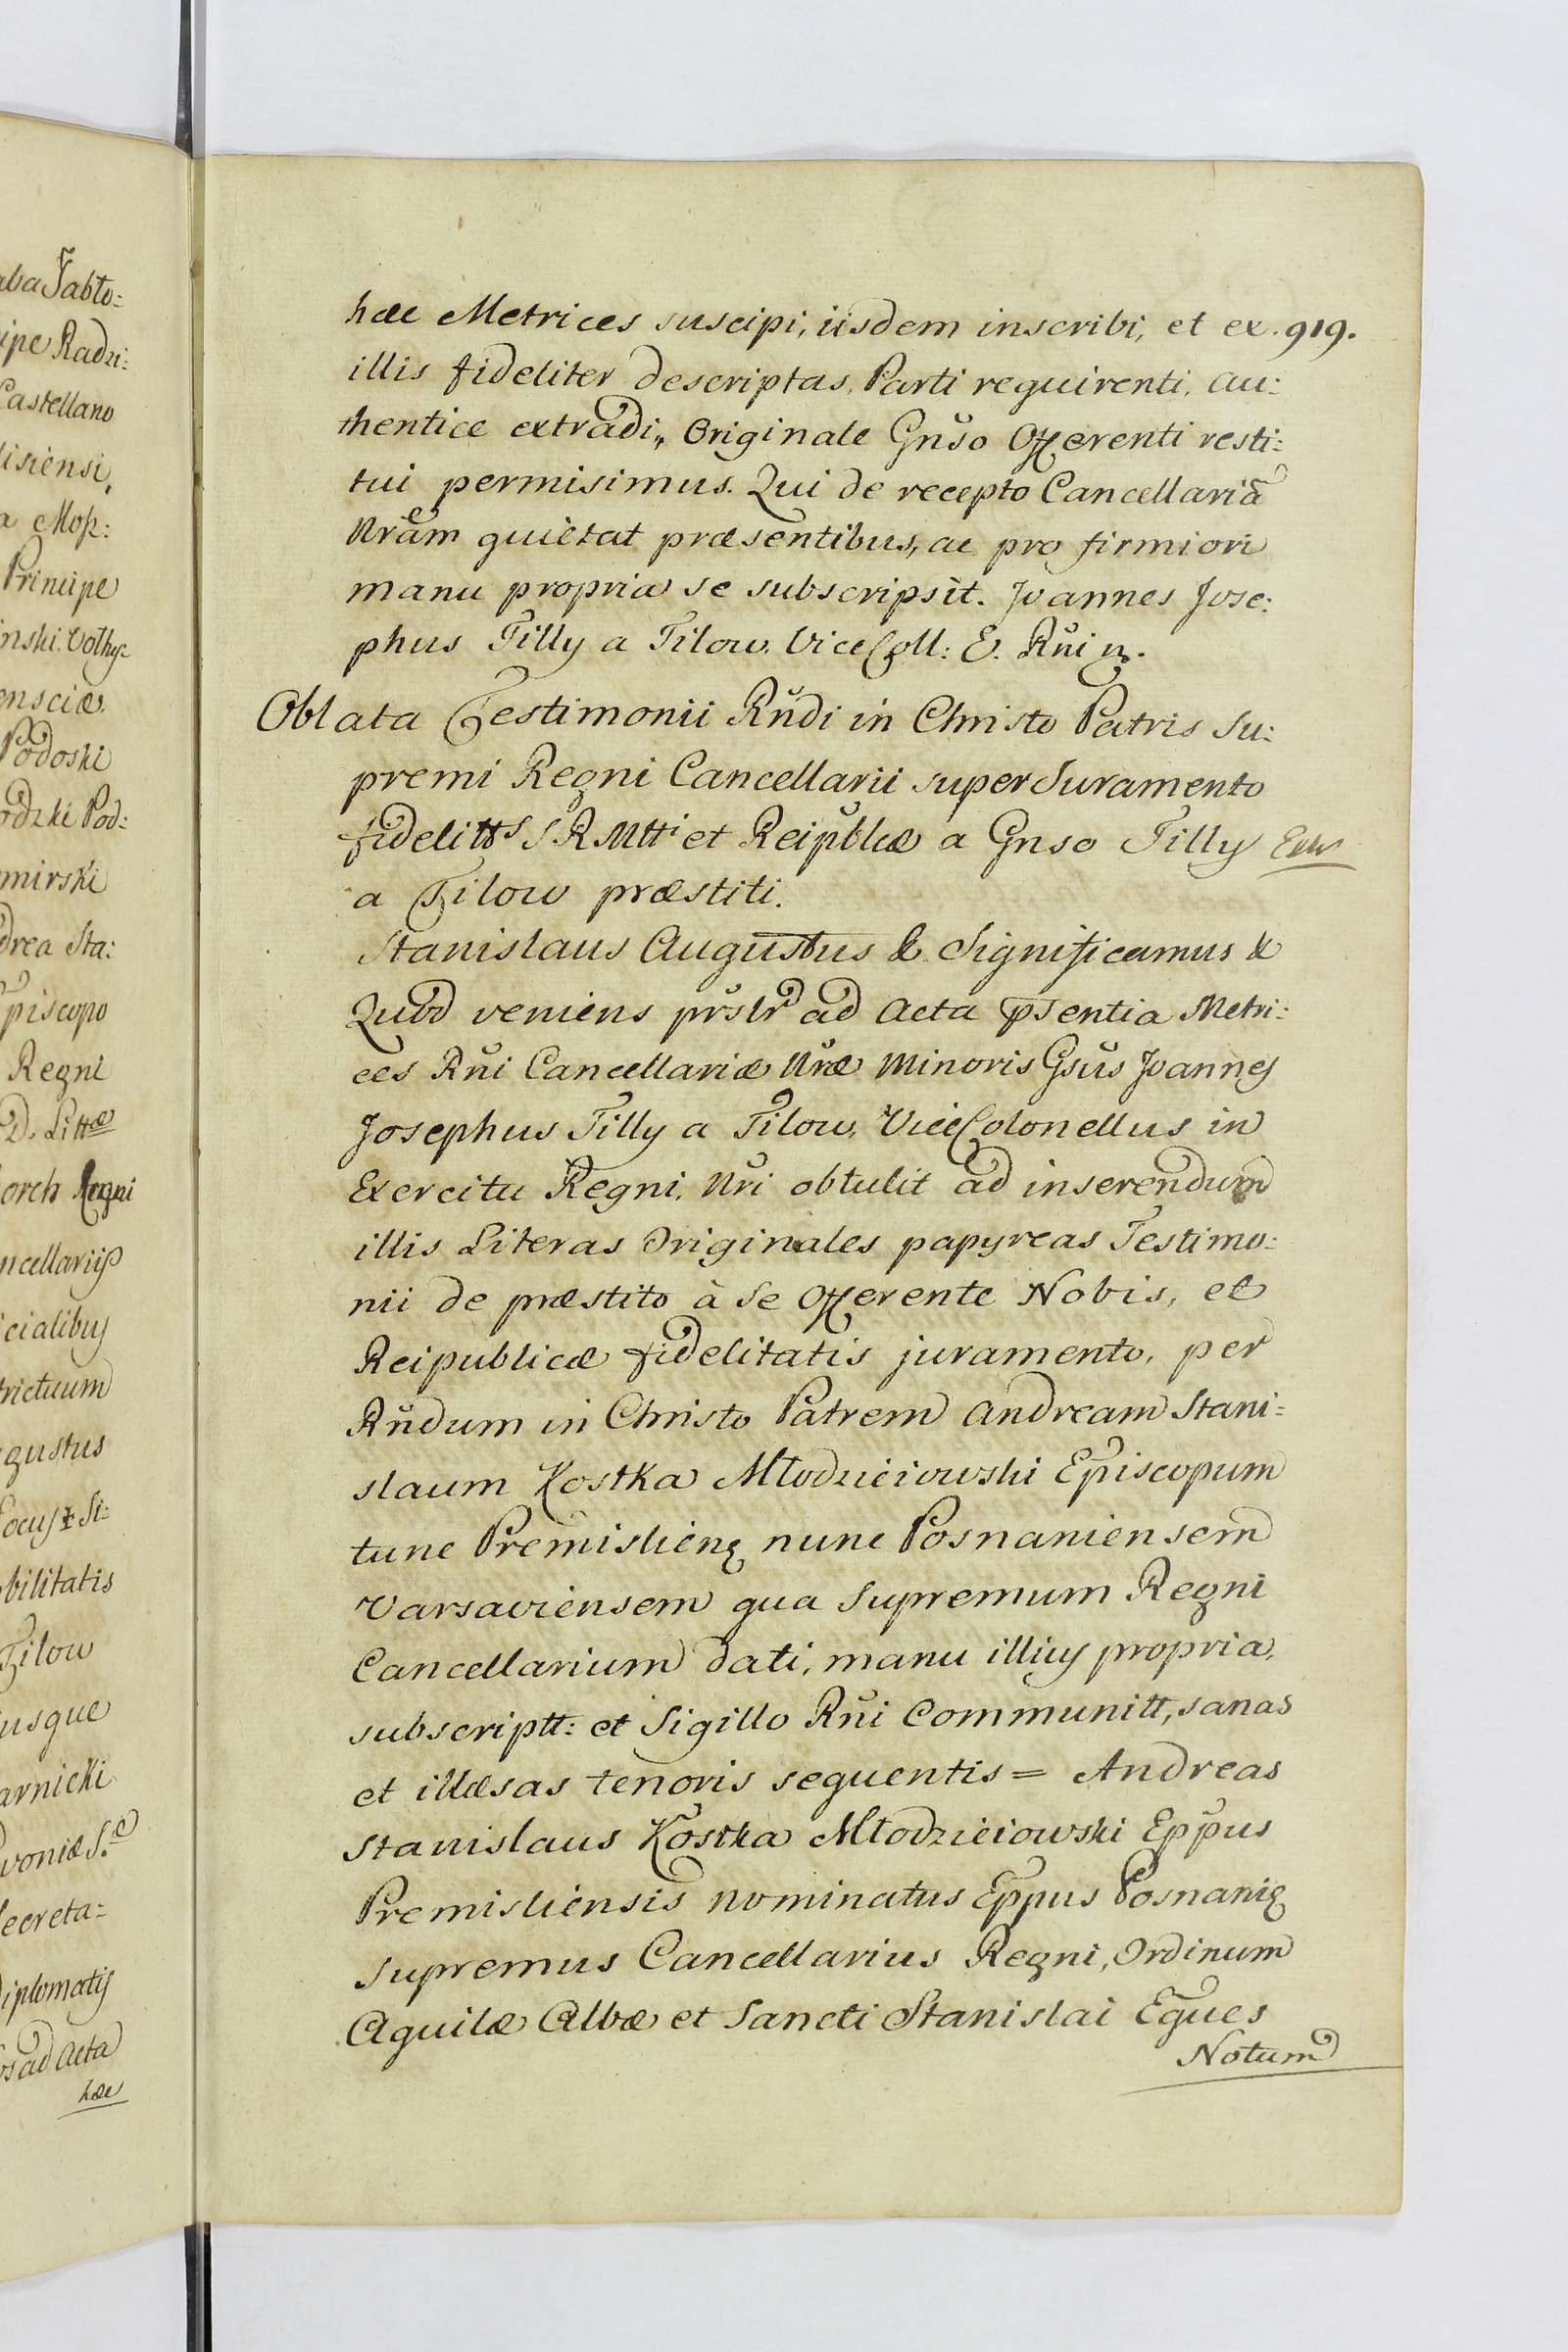 aba Jabło:
ipe Radzi:
Castellano
lisiensi,
a Mosz:
Principe
inski. Volhy:
ensciæ.
Podoski
odzki Pod:
mirski
drea Sta:
piscopo
Regni
D. Littæ
orch Regni
ncellariis
icialibus
trictuum
gustus
Locus Si:
bilitatis
Tilow
usque
arnicki
voniæ S.
ecreta=
Diplomatis
os ad Acta
hæc
hæc Metrices suscipi, iisdem inscribi, et ex. 919.
illis fideliter descriptas, Parti requirenti, au:
thentice extradi, Originale Gnso Offerenti resti:
tui permisimus. Qui de recepto Cancellariã
Nram quietat præsentibus, ac pro firmiori
manu propria se subscripsit. Joannes Jose:
phus Tilly a Tilow. ViceColl: E. Rni mp.
Oblata Testimonii Rndi in Christo Patris Su:
premi Regni Cancellarii super Juramento
fidelitts S R Mtti et Reipblcæ a Gnso Tilly
a Tilow præstiti.
Stanislaus Augustus & Significamus &
Quod veniens prslr ad Acta psentia Metri:
ces Rni Cancellariæ Nræ Minoris Gsus Joannes
Josephus Tilly a Tilow, ViceColonellus in
Exercitu Regni, Nri obtulit ad inserendum
illis Literas Originales papyreas Testimo:
nii de præstito à se Offerente Nobis, et
Reipublicæ fidelitatis juramento, per
Rndum in Christo Patrem Andream Stani=
slaum Kostka Młodzieiowski Episcopum
tunc Premislien nunc Posnaniensem
Varsaviensem qua Supremum Regni
Cancellarium dati, manu illius propria,
subscriptt: et Sigillo Rni Communitt, sanas
et illæsas tenoris sequentis = Andreas
Stanislaus Kostka Młodzieiowski Eppus
Premisliensis nominatus Eppus Posnaniẽ
Supremus Cancellarius Regni, Ordinum
Aquilæ Albæ et Sancti Stanislai Eques
Notum